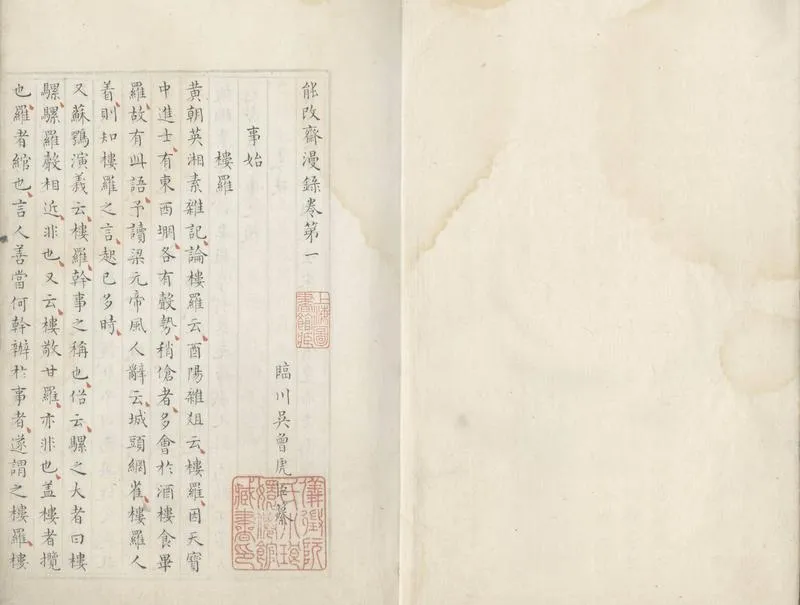 能改齋漫錄卷第一
臨川吳曾虎臣纂
事始
樓羅
黃朝英湘素雜記論樓羅云酉陽雜俎云樓羅因天寶
中進士有東西堋各有聲勢稍傖者多會於酒樓食畢
羅故有此語予讀梁元帝風人辭云城頭網雀樓羅人
着則知樓羅之言起已多時
又蘇鶚演義云樓羅幹事之稱也俗云騾之大者曰樓
騾騾羅聲相近非也又云樓敬甘羅亦非也蓋樓者攬
也羅者綰也言人善當何幹辦於事者遂謂之樓羅樓
上海圖書館藏